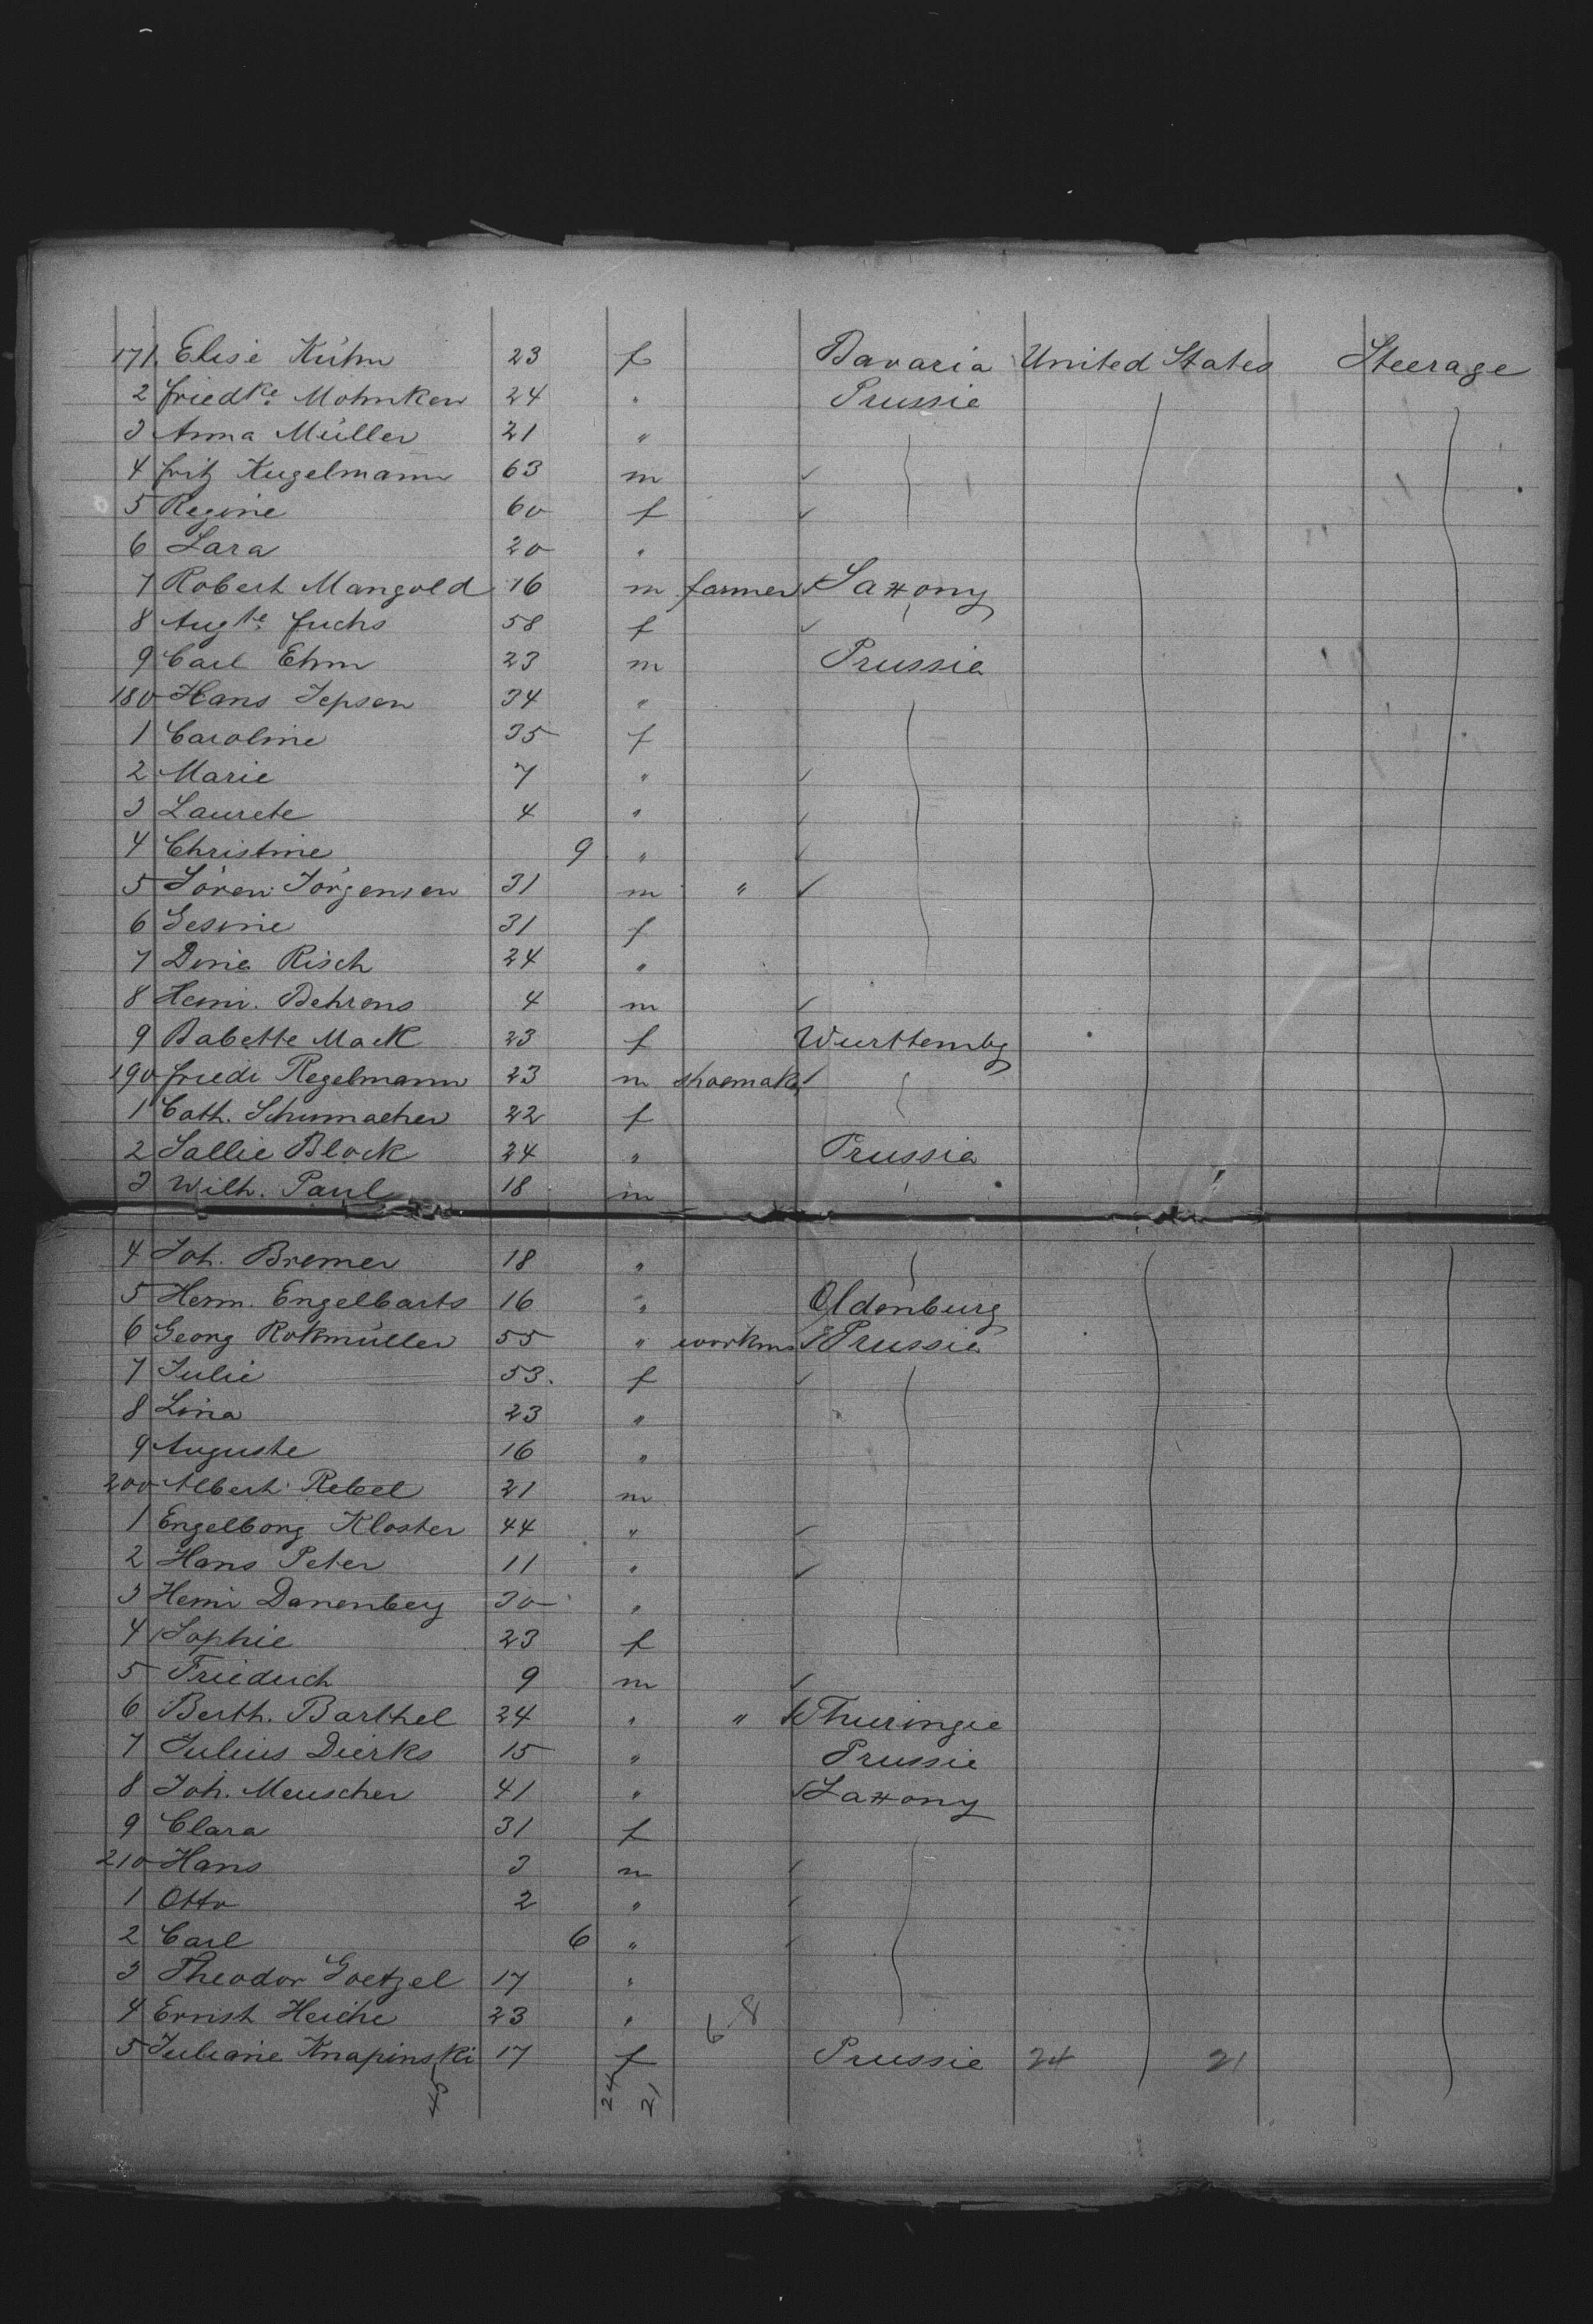 171. Elise Kühn 23 f Bavaria United States Steerage
2 Friedke. Mohnken 24 " Prussia
3 Anna Müller 21 "
4 Fritz Kugelmann 63 m
5 Regine 60 f
6 Sara 20 "
7 Robert Mangold 16 m farmer Saxony
8 Augte. Fuchs 58 f
9 Carl Ehm 23 m Prussia
180 Hans Jepsen 34 "
1 Caroline 35 f
2 Marie 7 "
3 Laurete 4 "
4 Christine 9 "
5 Sören Jörgensen 31 m "
6 Gesine 31 f
7 Dina Risch 24 "
8 Heinr. Behrens 4 m
9 Babette Mack 23 f Wurttembg
190 Friedr Regelmann 23 m shoemak
1 Cath. Schumacher 22 f
2 Sallie Block 24 " Prussia
3 Wilh. Paul 18 m
4 Joh. Bremer 18 "
5 Herm. Engelbarts 16 " Oldenburg
6 Georg Rotmüller 55 " workm Prussia
7 Julie 53. f
8 Lina 23 "
9 Auguste 16 "
200 Albert Rebel 21 m
1 Engelborg Kloster 44 "
2 Hans Peter 11 "
3 Heinr Danenberg 30 "
4 Sophie 23 f
5 Friedrich 9 m
6 Berth. Barthel 24 " " Thuringia
7 Julius Dierks 15 " Prussia
8 Joh. Meuscher 41 " Saxony
9 Clara 31 f
210 Hans 3 m
1 Otto 2 "
2 Carl 6 "
3 Theodor Goetzel 17 "
4 Ernst Heiche 23 " 6 8
5 Juliane Knapinski 17 f Prussia 24 21
45 24 21